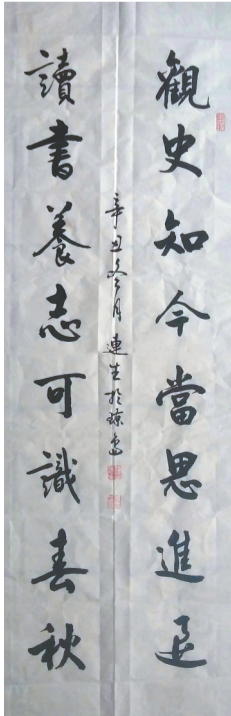 觀史知今當思進退
讀書養志可識春秋
辛丑冬月連生於琼島